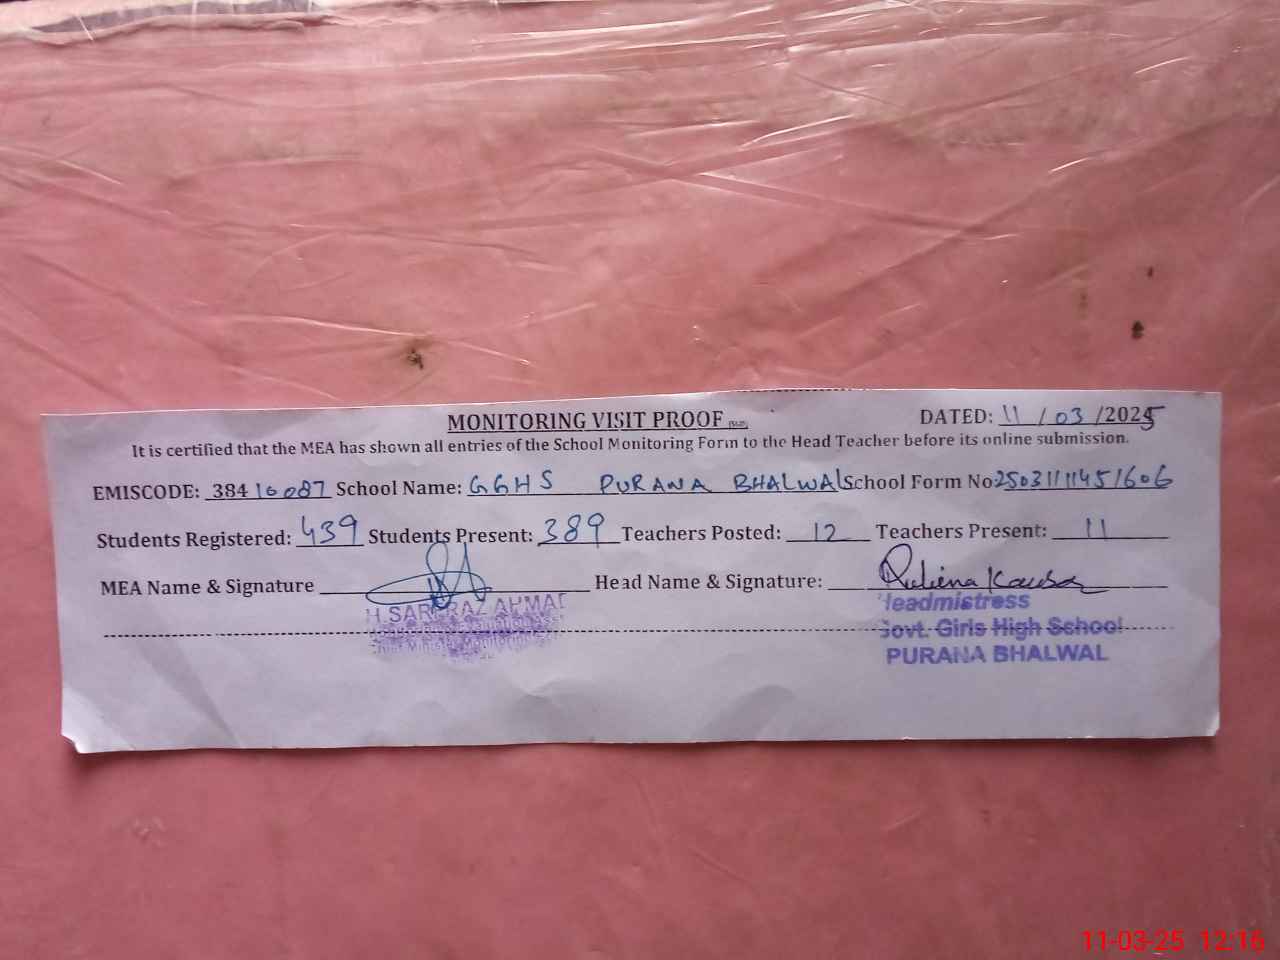 MONITORING VISIT PROOF DATED: 11 / 03 /2025
It is certified that the MEA has shown all entries of the School Monitoring Form to the Head Teacher before its online submission.
EMISCODE: 38410087 School Name: GGHS PURANA BHALWAL School Form No 25031111451606
Students Registered: 439 Students Present: 389 Teachers Posted: 12 Teachers Present: 11
MEA Name & Signature Head Name & Signature:
H. SARFRAZ AHMAD
Headmistress
Govt. Girls High School
PURANA BHALWAL
11-03-25 12:16